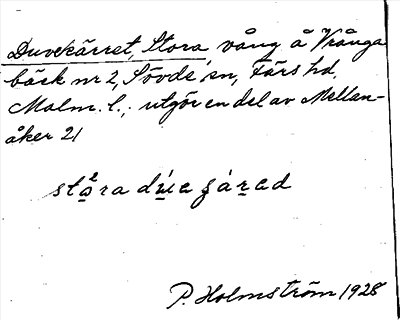 Duvekärret, Stora vång å Vrånga
bäck nr 2, Sövde sn, Färs hd,
Malm. l.; utgör en del av Mellan-
åker 21
sto²ra dúa ɕáꞧad
P. Holmström 1928